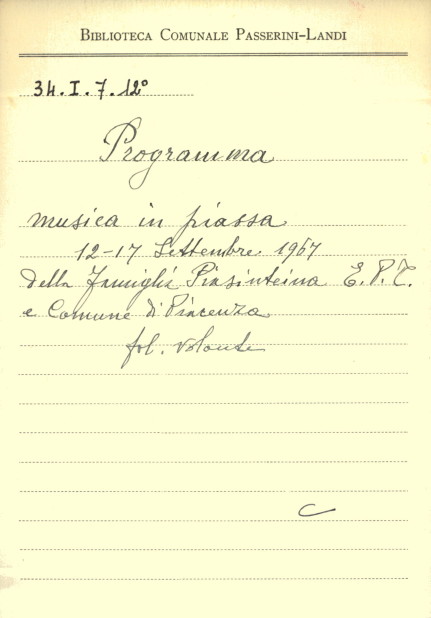 BIBLIOTECA COMUNALE PASSERINI-LANDI
34. I. 7. 12°
Programma
musica in piassa
12-17 Settembre 1967
della Famiglia Piasinteina E. P. T.
e Comune di Piacenza
fol. volante
C